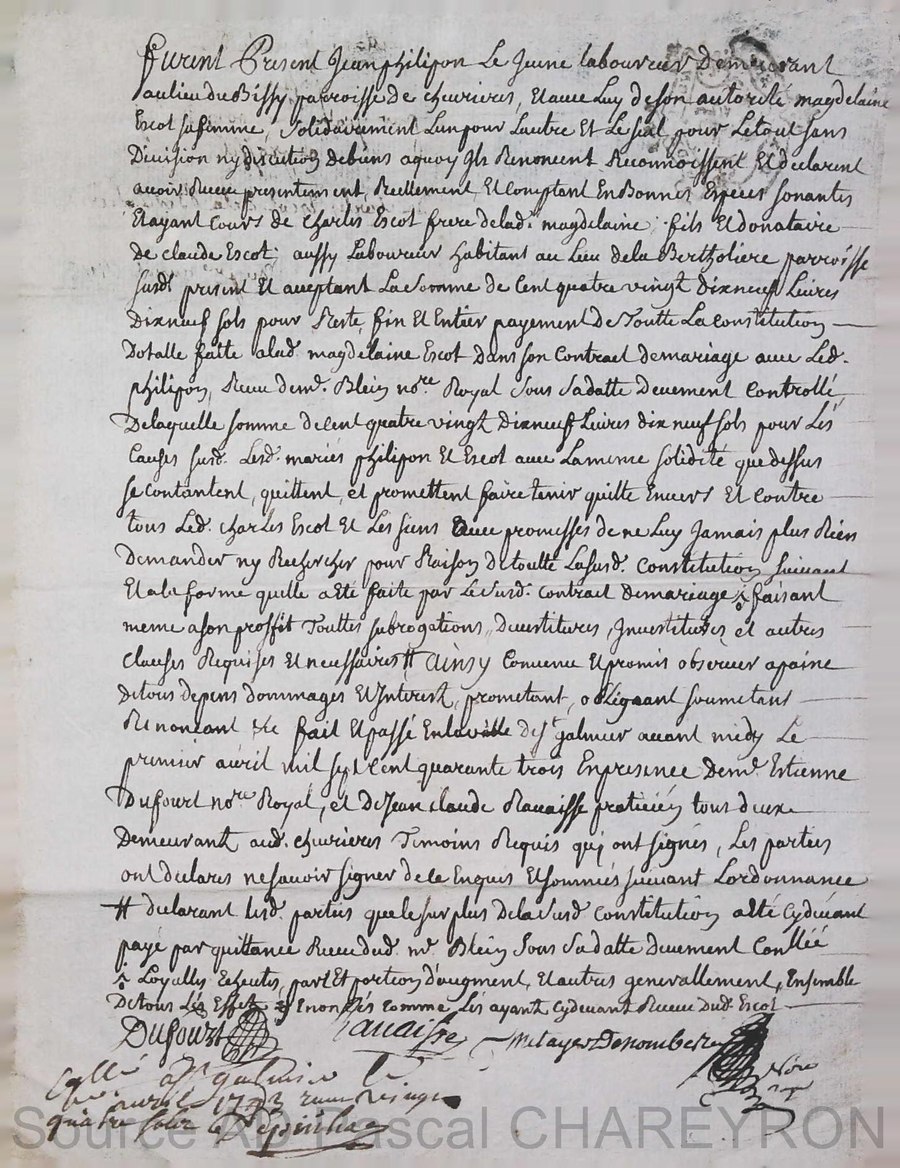 Furent Present Jean philipon Le Jeune laboureur Demeurant
au lieu du Bissy parroisse de chevrieres, Et avec Luy de son autorité magdelaine
Escot sa femme, solidairement Lun pour Lautre Et Le seal pour Le tout sans
Division ny discution de biens a quoy Ils Renoncent Reconnoissent Et declarent
avoir Receu presentement Reellement Et Comptant En Bonnes Especes sonantes
Et ayant Cours de Charles Escot frere de lad. magdelaine, fils Et donataire
de claude Escot, aussy Laboureur habitant au Lieu de la Bertholiere parroisse
susd. present Et aceptant La somme de Cent quatre vingt dix neuf Livres
Dix neuf sols pour Reste, fin Et Entier payement De Toutte La Constitution
Dotalle faitte a lad. magdelaine Escot Dans son Contract de mariage avec Led.
philipon, Receu de me. Blein nore. Royal sous sa datte Deuement Controllé,
De laquelle somme de Cent quatre vingt Dix neuf Livres dix neuf sols pour Les
Causes susd. Lesd. mariés philipon Et Escot avec La meme solidité que dessus
se Contantent, quittent, et promettent faire tenir quitte Envers Et Contre
tous Led. charles Escot Et Les siens avec promesses de ne Luy Jamais plus Rien
Demander ny Rechercher pour Raison de toutte La susd. Constitution suivant
Et a la forme quelle a eté faite par Le susd. Contract de mariage faisant
meme a son proffit Touttes subrogations, Devestitures, Investitures et autres
Clauses Requises Et necessaires # Ainsy Convenu Et promis observer a paine
De tous depens dommages Et Interest, prometant, obligeant soumetant
Renoncant &c fait Et passé En la ville de st. galmier avant midy Le
premier avril mil sept Cent quarante trois En presence De me. Estienne
Dufourt nore. Royal, et De Jean claude Ravaisse praticien tous deux
Demeurant aud. chevrieres Temoins Requis qui ont signés, Les parties
ont declarés ne savoir signer de ce Enquis Et sommés suivant Lordonnance
# declarant lesd. parties que le surplus de la susd. Constitution a eté Cydevant
payé par quittance Receu dud. me. Blein sous sa datte Deuement Conllée
Loyalles Echeutes, part Et portion d'augment, Et autres generallement, Ensemble
De tous Les Effets Enoncés Comme Les ayant Cydevant Receu dud. Escot
Dufourt Ravaisse metayer Denombre
Nore
Collé a st galmier Le
avril 1743 receu vingt
quatre sols
Source AD Pascal CHAREYRON